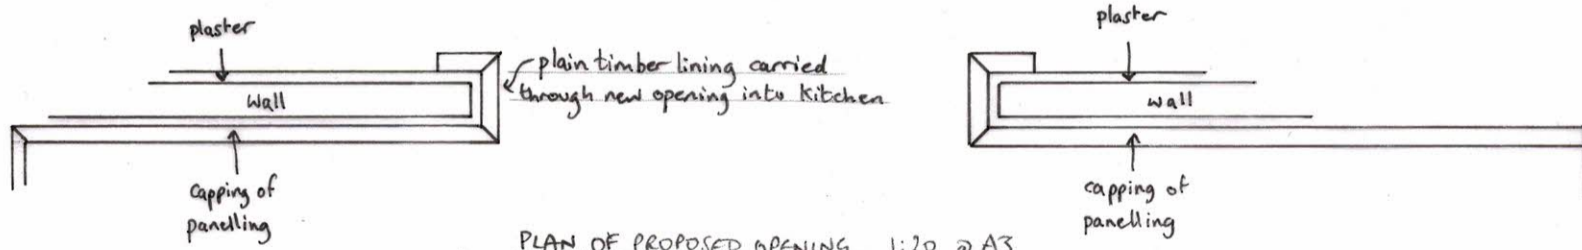 plaster
wall
plain timber lining carried
through new opening into Kitchen
capping of
panelling
plaster
wall
capping of
panelling
PLAN OF PROPOSED OPENING 1:20 @ A3